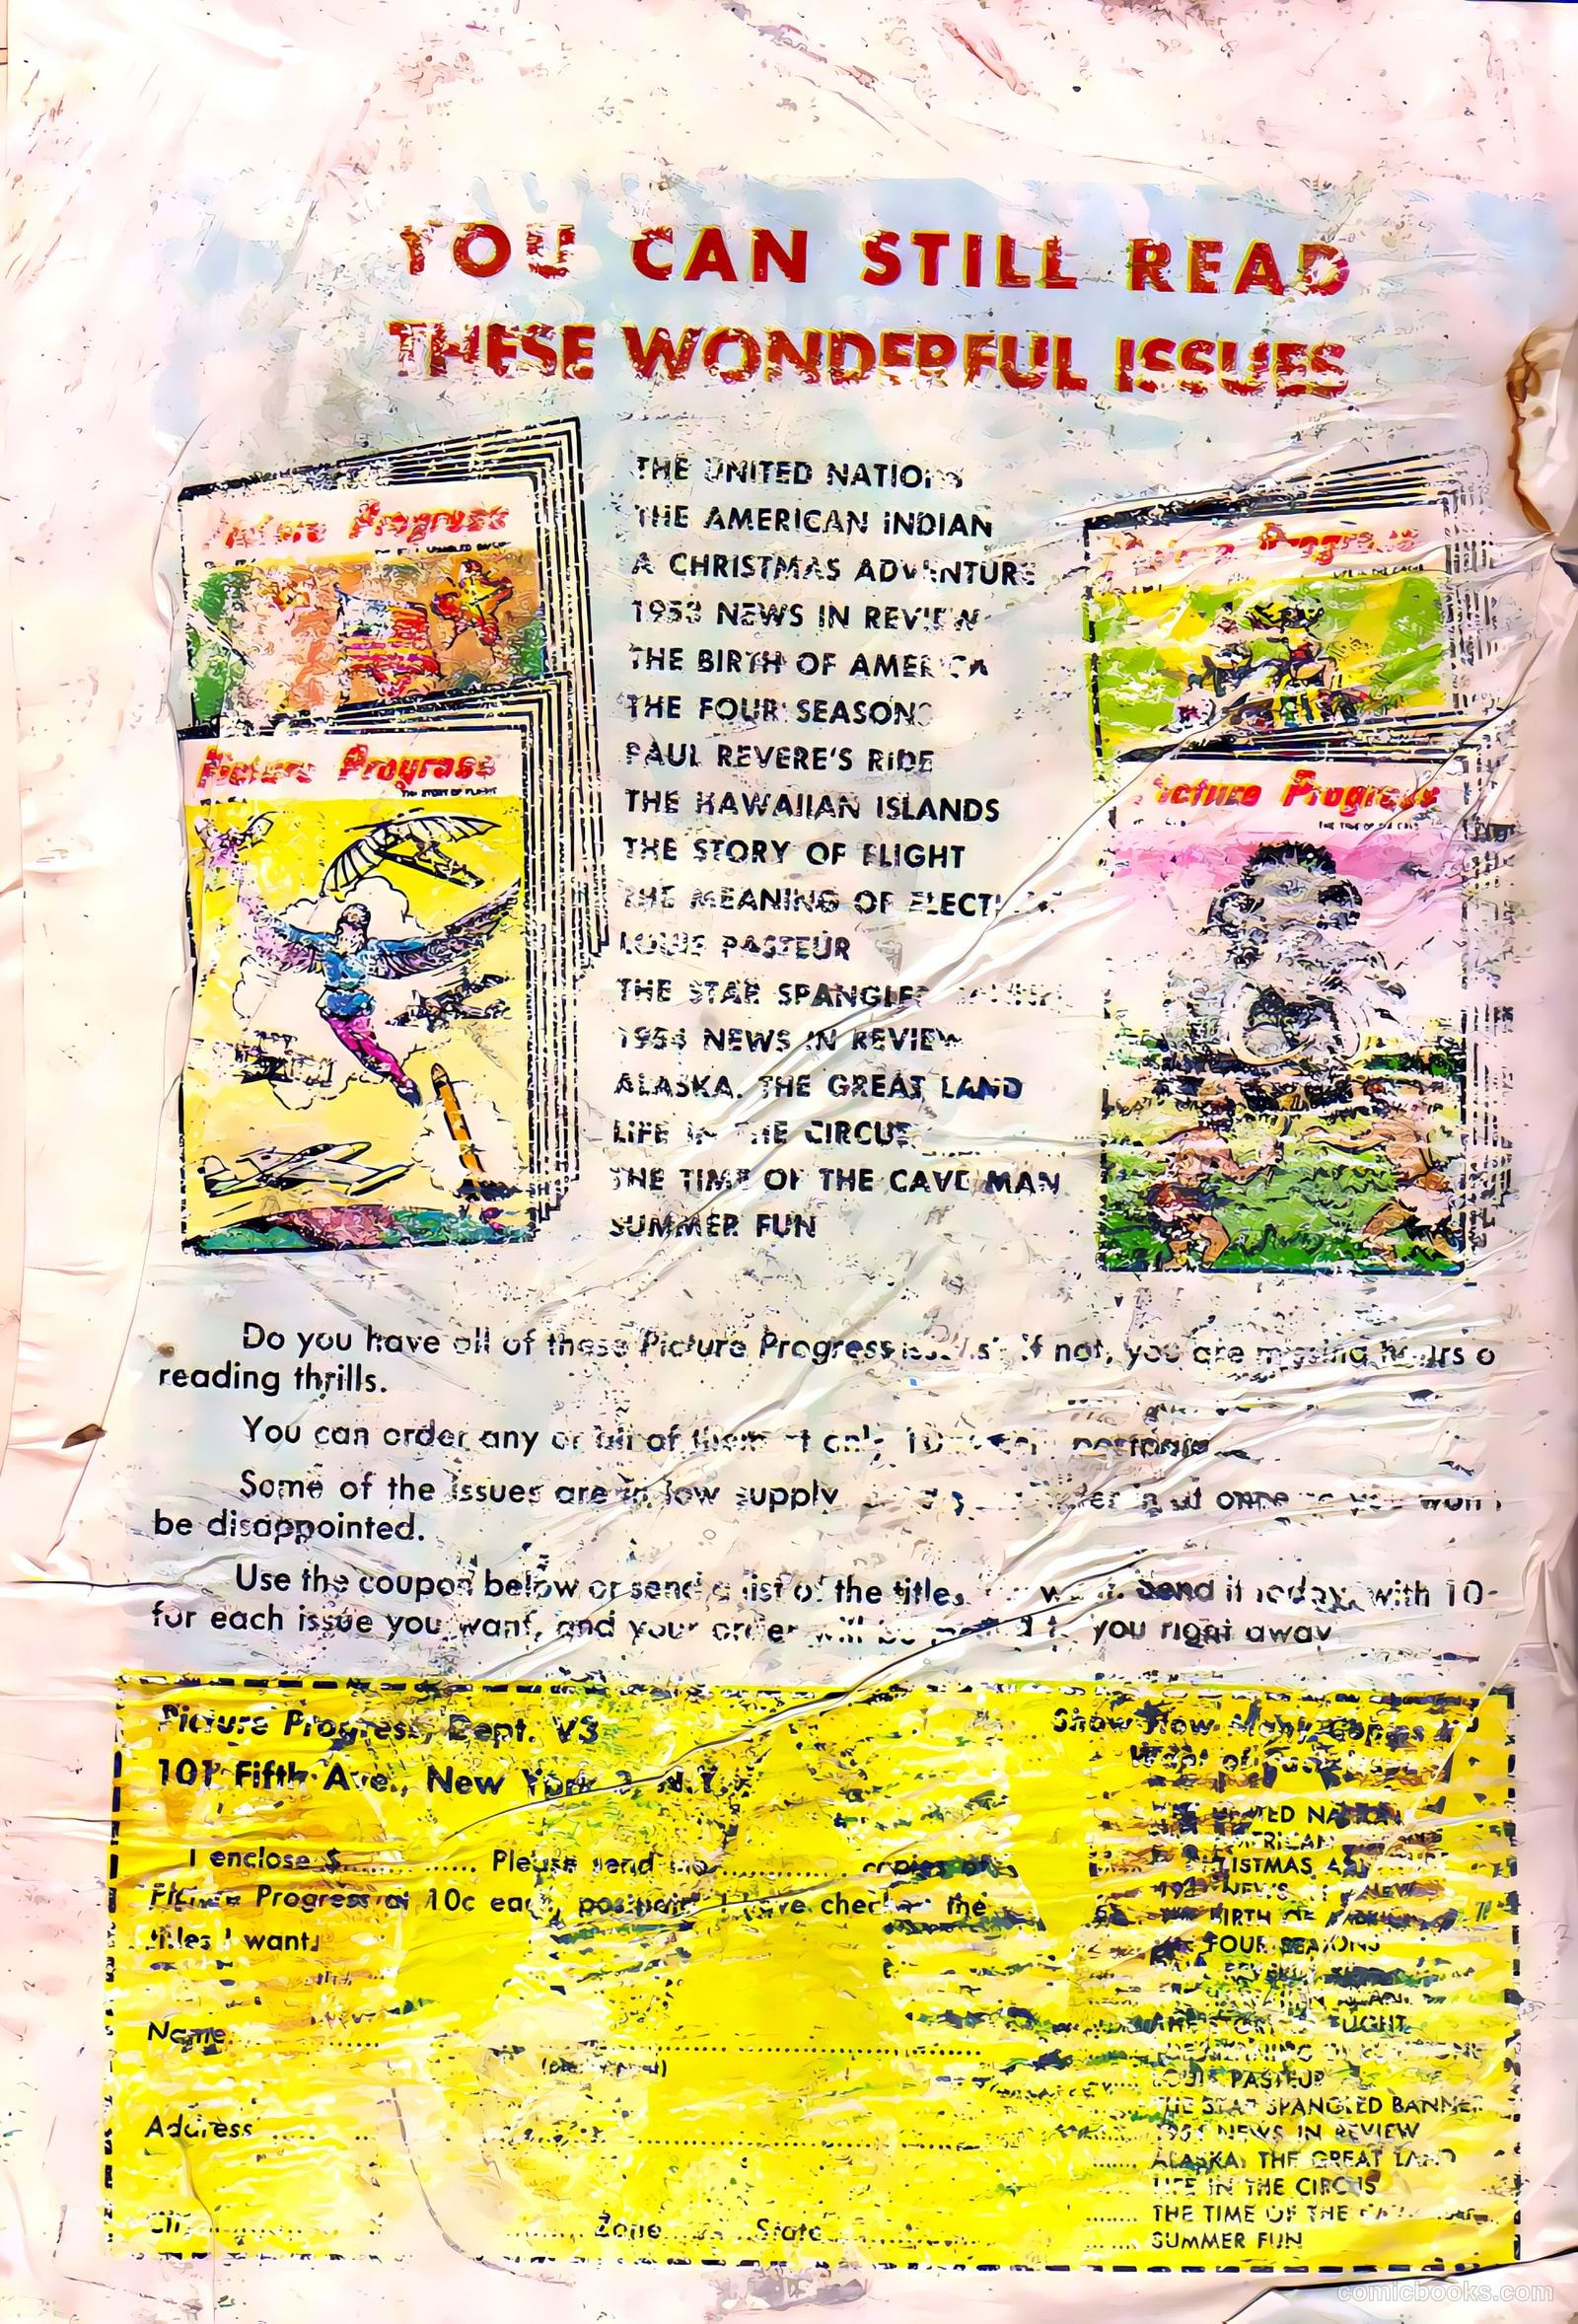 YOU CAN STILL READ
THESE WONDERFUL ISSUES
Picture Progress
Picture Progress
THE STORY OF FLIGHT
Progress
Picture Progress
THE UNITED NATIONS
THE AMERICAN INDIAN
A CHRISTMAS ADVENTURE
1953 NEWS IN REVIEW
THE BIRTH OF AMERICA
THE FOUR SEASONS
PAUL REVERE'S RIDE
THE HAWAIIAN ISLANDS
THE STORY OF FLIGHT
THE MEANING OF
LOUIS PASTEUR
THE STAR SPANGLED
1954 NEWS IN REVIEW
ALASKA, THE GREAT LAND
LIFE IN THE CIRCUS
THE TIME OF THE CAVE MAN
SUMMER FUN
Do you have all of these Picture Progress issues? If not, you are missing hours o
reading thrills.
You can order any or all of them at only 10 postpaid
Some of the issues are in low supply in at once so you won't
be disappointed.
Use the coupon below or send a list of the titles want. Send it today, with 10
for each issue you want, and your order will be mailed to you right away
Picture Progress, Dept. V3
101 Fifth Ave., New York 3, N.Y.
I enclose $.............. Please send me.............. copies of
Picture Progress at 10c each, postpaid. I have checked the
titles I want.
Name
(please print)
Address
City Zone State
Show How Many Copies
Want of
THE UNITED NATIONS
AMERICAN
CHRISTMAS
NEWS
BIRTH OF
FOUR SEASONS
FLIGHT
LOUIS PASTEUR
THE STAR SPANGLED BANNER
1954 NEWS IN REVIEW
ALASKA, THE GREAT LAND
LIFE IN THE CIRCUS
THE TIME OF THE
SUMMER FUN
comicbooks.com